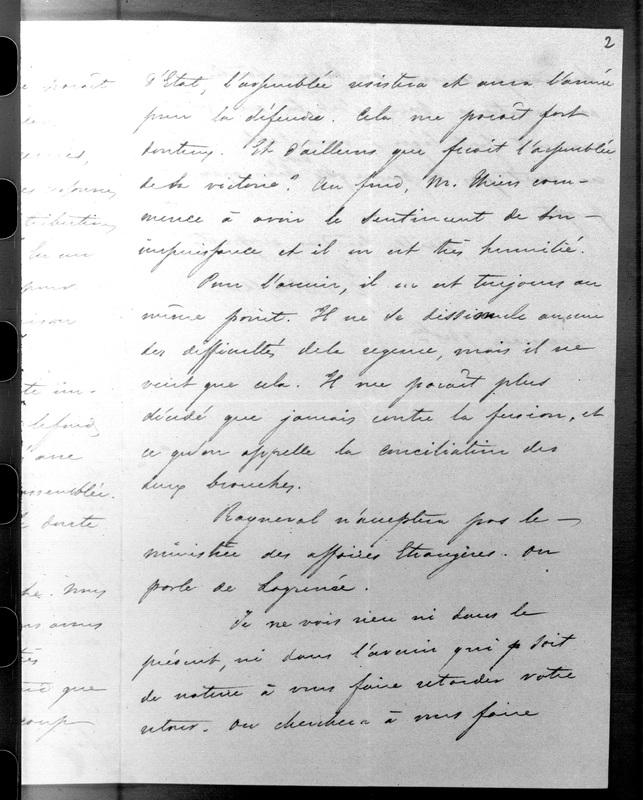 2
d'Etat, l'assemblée resistera et aura l'armée
pour la défendre. Cela me paroît fort
douteux. Et d'ailleurs que feroit l'assemblée
de sa victoire? Au fond, Mr. Thiers com-
mence à avoir le sentiment de son
impuissance et il en est très humilié.
Pour l'avenir, il en est toujours au
même point. Il ne se dissimule aucune
des difficultés de la regence, mais il ne
veut que cela. Il me paroît plus
décidé que jamais contre la fusion, et
ce qu'on appelle la conciliation des
deux branches.
Rayneval n'acceptera pas le
ministère des affaires Etrangères. On
parle de Lagrenée.
Je ne vois rien ni dans le
présent, ni dans l'avenir qui soit
de nature à vous faire retarder votre
retour. On cherchera à vous faire
paroît
tribution
pour
te im-
le fond,
assemblée.
doute
nous
que
coup